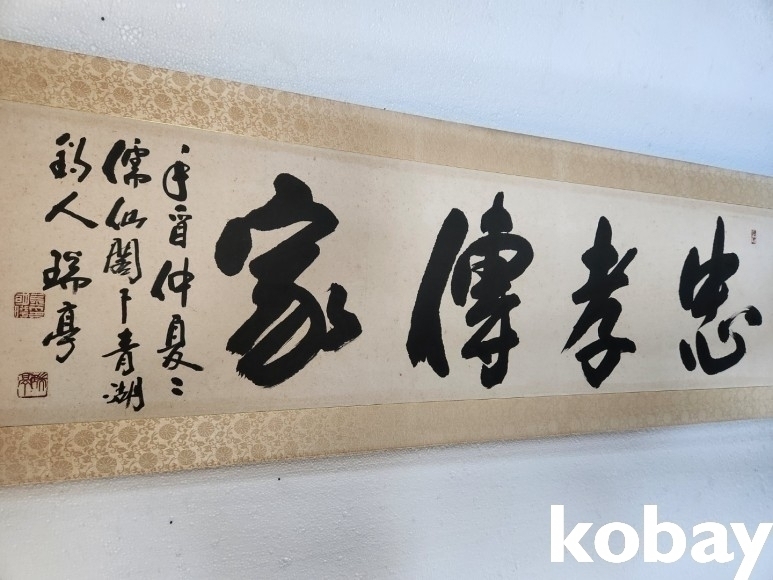 忠孝傳家
辛酉仲夏
儒仙閣下青湖
釣人 瑞亭
kobay